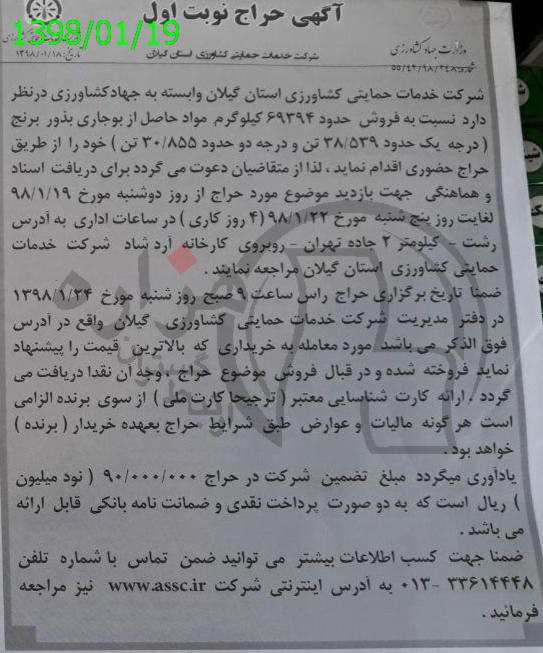 آگهی حراج نوبت اول
1398/01/19
وزارت جهاد کشاورزی
شرکت خدمات حمایتی کشاورزی استان گیلان
تاریخ: ۱۳۹۸/۰۱/۱۸
شماره: ۵۵/۴۲/۹۸/۲۴۸
شرکت خدمات حمایتی کشاورزی استان گیلان وابسته به جهادکشاورزی درنظر
دارد نسبت به فروش حدود ۶۹۳۹۴ کیلوگرم مواد حاصل از بوجاری بذور برنج
( درجه یک حدود ۳۸/۵۳۹ تن و درجه دو حدود ۳۰/۸۵۵ تن ) خود را از طریق
حراج حضوری اقدام نماید ، لذا از متقاضیان دعوت می گردد برای دریافت اسناد
و هماهنگی جهت بازدید موضوع مورد حراج از روز دوشنبه مورخ ۹۸/۱/۱۹
لغایت روز پنج شنبه مورخ ۹۸/۱/۲۲ (۴ روز کاری ) در ساعات اداری به آدرس
رشت - کیلومتر ۲ جاده تهران - روبروی کارخانه آرد شاد شرکت خدمات
حمایتی کشاورزی استان گیلان مراجعه نمایند .
ضمنا تاریخ برگزاری حراج راس ساعت ۹ صبح روز شنبه مورخ ۱۳۹۸/۱/۲۴
در دفتر مدیریت شرکت خدمات حمایتی کشاورزی گیلان واقع در آدرس
فوق الذکر می باشد . مورد معامله به خریداری که بالاترین قیمت را پیشنهاد
نماید فروخته شده و در قبال فروش موضوع حراج ، وجه آن نقدا دریافت می
گردد . ارائه کارت شناسایی معتبر ( ترجیحا کارت ملی ) از سوی برنده الزامی
است هر گونه مالیات و عوارض طبق شرایط حراج بعهده خریدار ( برنده )
خواهد بود .
یادآوری میگردد مبلغ تضمین شرکت در حراج ۹۰/۰۰۰/۰۰۰ ( نود میلیون
) ریال است که به دو صورت پرداخت نقدی و ضمانت نامه بانکی قابل ارائه
می باشد .
ضمنا جهت کسب اطلاعات بیشتر می توانید ضمن تماس با شماره تلفن
۳۳۶۱۴۴۴۸ -۰۱۳ به آدرس اینترنتی شرکت www.assc.ir نیز مراجعه
فرمانید .
هزاره